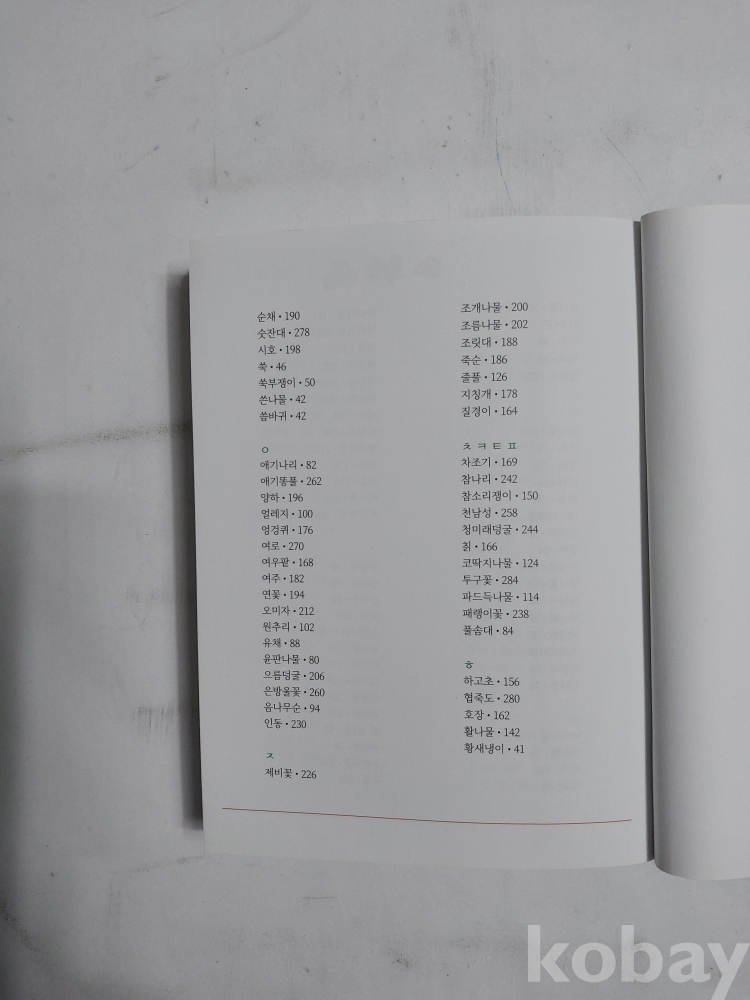 순채 • 190
숫잔대 • 278
시호 • 198
쑥 • 46
쑥부쟁이 • 50
쓴나물 • 42
씀바귀 • 42
ㅇ
애기나리 • 82
애기똥풀 • 262
양하 • 196
얼레지 • 100
엉겅퀴 • 176
여로 • 270
여우팥 • 168
여주 • 182
연꽃 • 194
오미자 • 212
원추리 • 102
유채 • 88
윤판나물 • 80
으름덩굴 • 206
은방울꽃 • 260
음나무순 • 94
인동 • 230
ㅈ
제비꽃 • 226
조개나물 • 200
조름나물 • 202
조릿대 • 188
죽순 • 186
줄풀 • 126
지칭개 • 178
질경이 • 164
ㅊ ㅋ ㅌ ㅍ
차조기 • 169
참나리 • 242
참소리쟁이 • 150
천남성 • 258
청미래덩굴 • 244
칡 • 166
코딱지나물 • 124
투구꽃 • 284
파드득나물 • 114
패랭이꽃 • 238
풀솜대 • 84
ㅎ
하고초 • 156
협죽도 • 280
호장 • 162
활나물 • 142
황새냉이 • 41
kobay